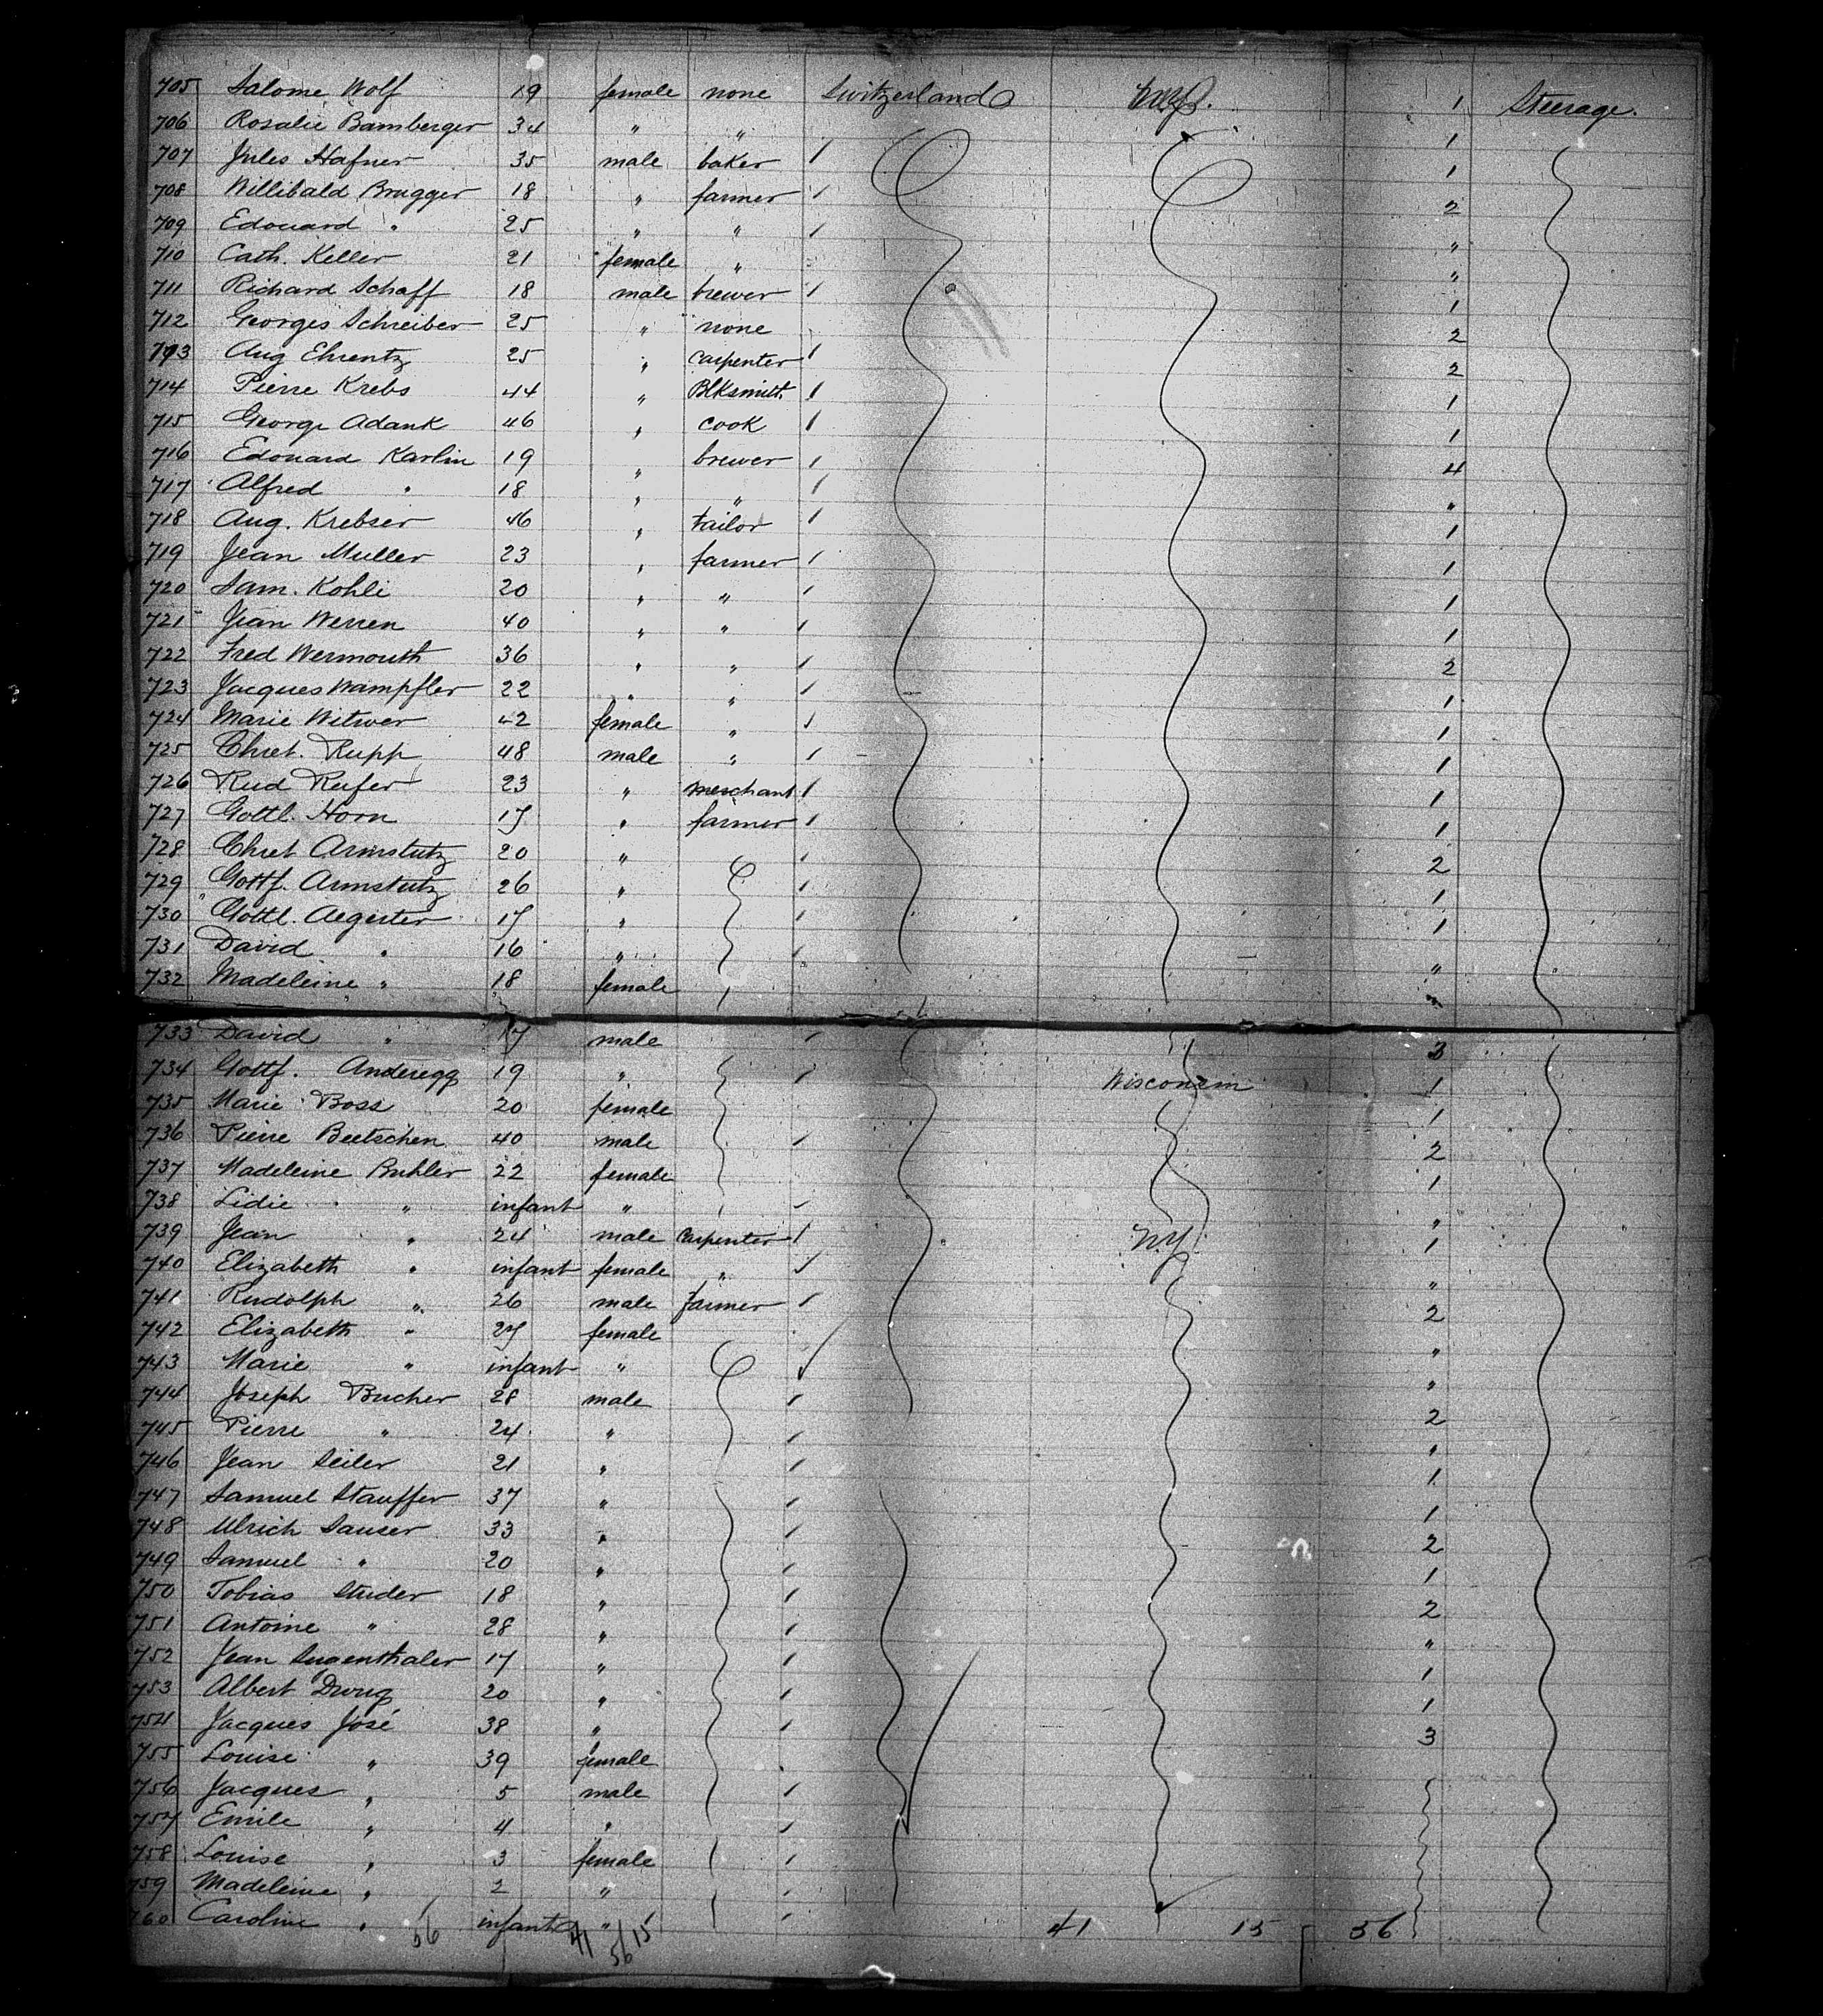 705 Salome Wolf 19 female none Switzerland 1 Steerage.
706 Rosalie Bamberger 34 " " 1
707 Jules Hafner 35 male baker 1
708 Willibald Brugger 18 " farmer 2
709 Edouard " 25 " " "
710 Cath. Keller 21 female " "
711 Richard Schaff 18 male brewer 1
712 Georges Schreiber 25 " none 2
713 Aug Ehrentz 25 " carpenter 2
714 Pierre Krebs 44 " Blksmith 1
715 George Adank 46 " cook 1
716 Edouard Karlin 19 " brewer 4
717 Alfred " 18 " " "
718 Aug. Krebser 46 " tailor 1
719 Jean Muller 23 " farmer 1
720 Sam. Kohli 20 " " 1
721 Jean Werren 40 " " 1
722 Fred Wermouth 36 " " 2
723 Jacques Wampfler 22 " " 1
724 Marie Witwer 42 female " 1
725 Chret. Rupp 48 male " 1
726 Rud Rufer 23 " merchant 1
727 Gottl. Horn 17 " farmer 1
728 Chret Armstutz 20 " 2
729 Gottf. Armstutz 26 " 1
730 Gottl. Aegerter 17 " 1
731 David " 16 " "
732 Madeleine " 18 female "
733 David " 17 male 3
734 Gottf. Anderegg 19 " Wisconsin 1
735 Marie Boss 20 female 1
736 Pierre Beetschen 40 male 2
737 Madeleine Buhler 22 female 1
738 Lidie " infant " "
739 Jean " 24 male Carpenter N.Y. 1
740 Elizabeth " infant female " "
741 Rudolph " 26 male Farmer 2
742 Elizabeth " 27 female "
743 Marie " infant " "
744 Joseph Bucher 28 male 2
745 Pierre " 24 " "
746 Jean Seiler 21 " 1
747 Samuel Stauffer 37 " 1
748 Ulrich Sauser 33 " 2
749 Samuel " 20 " 1
750 Tobias Studer 18 " 2
751 Antoine " 28 " "
752 Jean Sugenthaler 17 " 1
753 Albert 20 " 1
754 Jacques José 38 " 3
755 Louise " 39 female
756 Jacques " 5 male
757 Emile " 4 "
758 Louise " 3 female
759 Madeleine " 2 "
760 Caroline " infant " 41 15 56
56 41 56 15